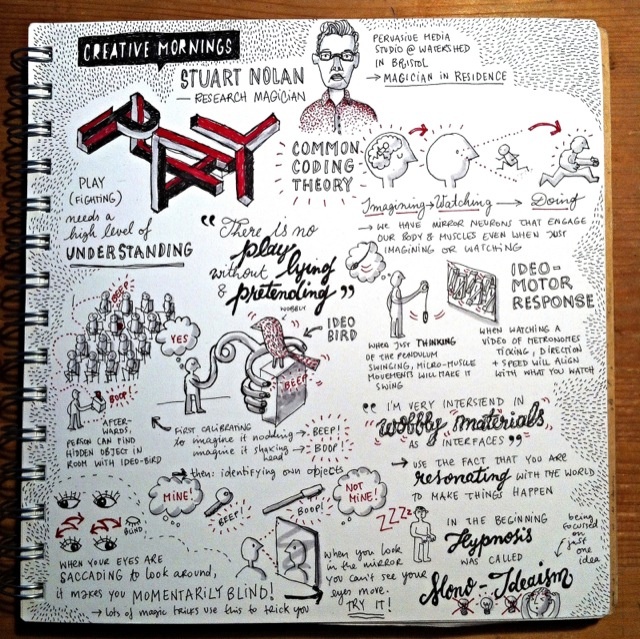 CREATIVE MORNINGS
STUART NOLAN
— RESEARCH MAGICIAN
PERVASIVE MEDIA
STUDIO @ WATERSHED
IN BRISTOL
→ MAGICIAN IN RESIDENCE
PLAY
PLAY
(FIGHTING)
needs a
high level of
UNDERSTANDING
COMMON
CODING
THEORY
Imagining → Watching → Doing
→ WE HAVE MIRROR NEURONS THAT ENGAGE
OUR BODY & MUSCLES EVEN WHEN JUST
IMAGINING OR WATCHING
"There is no
play
without lying
& pretending"
IDEO-
MOTOR
RESPONSE
WHEN JUST THINKING
OF THE PENDULUM
SWINGING, MICRO-MUSCLE
MOVEMENTS WILL MAKE IT
SWING
WHEN WATCHING A
VIDEO OF METRONOMES
TICKING, DIRECTION
+ SPEED WILL ALIGN
WITH WHAT YOU WATCH
BEEP
BOOP!
AFTER-
WARDS:
PERSON CAN FIND
HIDDEN OBJECT IN
ROOM WITH IDEO-BIRD
YES
WOBBLY
IDEO
BIRD
BEEP
FIRST CALIBRATING
to imagine it nodding → BEEP!
imagine it shaking → BOOP!
head
→ then: identifying own objects
MINE!
BEEP!
BOOP!
NOT
MINE!
"I'M VERY INTERSTEND IN
wobbly materials
AS INTERFACES"
→ USE THE FACT THAT YOU ARE
resonating WITH THE WORLD
TO MAKE THINGS HAPPEN
BLIND
WHEN YOUR EYES ARE
SACCADING to look around,
it makes you MOMENTARILY BLIND!
→ Lots of magic tricks use this to trick you
when you look
in the mirror
you can't see your
eyes move.
TRY IT!
ZZZz
IN THE BEGINNING
Hypnosis
WAS CALLED
Mono-Ideaism
being
focused
on
just
one
idea